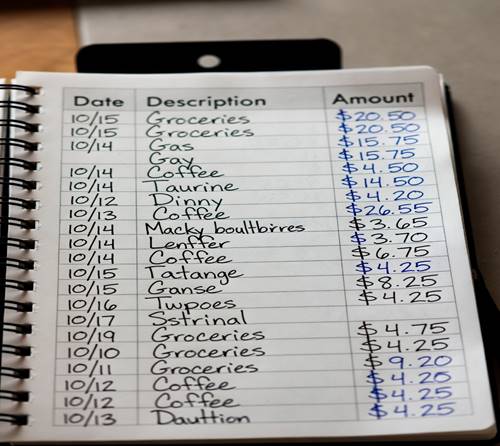 Date Description Amount
10/15 Groceries $20.50
10/15 Groceries $20.50
10/14 Gas $15.75
Gay $15.75
10/14 Coffee $4.50
10/14 Taurine $14.50
10/12 Dinny $4.20
10/13 Coffee $26.55
10/14 Macky boultbirres $3.65
10/14 Lenffer $3.70
10/14 Coffee $6.75
10/15 Tatange $4.25
10/15 Ganse $8.25
10/16 Twpoes $4.25
10/17 Sstrinal
10/19 Groceries $4.75
10/10 Groceries $4.25
10/11 Groceries $9.20
10/12 Coffee $4.20
10/12 Coffee $4.25
10/13 Dauttion $4.25